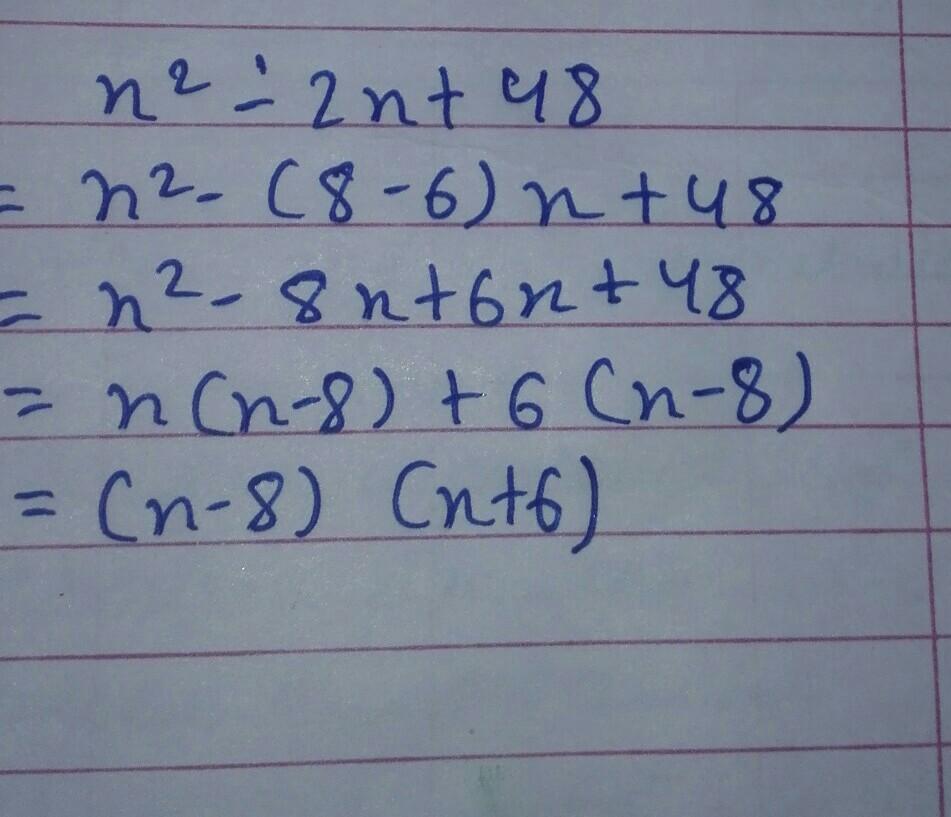 n² - 2n + 48
= n² - (8 - 6) n + 48
= n² - 8n + 6n + 48
= n (n - 8) + 6 (n - 8)
= (n - 8) (n + 6)